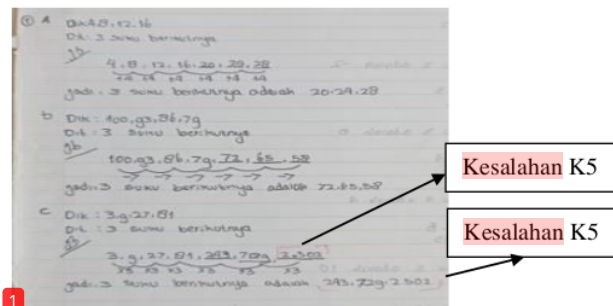 ① A Dik 4, 8, 12, 16
Dit : 3 suku berikutnya
Jb
4, 8, 12, 16, 20, 24, 28
+4 +4 +4 +4 +4 +4
Jadi. 3 suku berikutnya adalah 20.24.28
b Dik : 100, 93, 86, 79
Dit : 3 suku berikutnya
Jb
100, 93, 86, 79, 72, 65, 58
-7 -7 -7 -7 -7 -7
Jadi. 3 suku berikutnya adalah 72.65.58
Kesalahan K5
c Dik : 3.9.27.81
Dit : 3 suku berikutnya
Jb
Kesalahan K5
3, 9, 27, 81, 243, 729, 2.502
x3 x3 x3 x3 x3 x3
Jadi. 3 suku berikutnya adalah 243, 729. 2.502
1